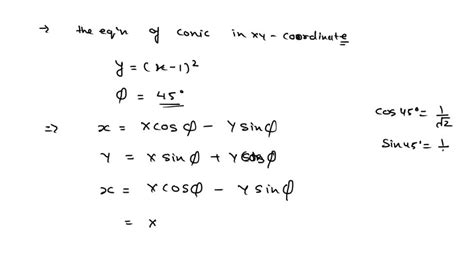 → the eq'n of conic in xy-coordinate
y = (x-1)²
φ = 45°
⇒ x = Xcosφ - Ysinφ
Y = Xsinφ + Ycosφ
x = Xcosφ - Ysinφ
= X
cos45° = 1/√2
sin45° = 1